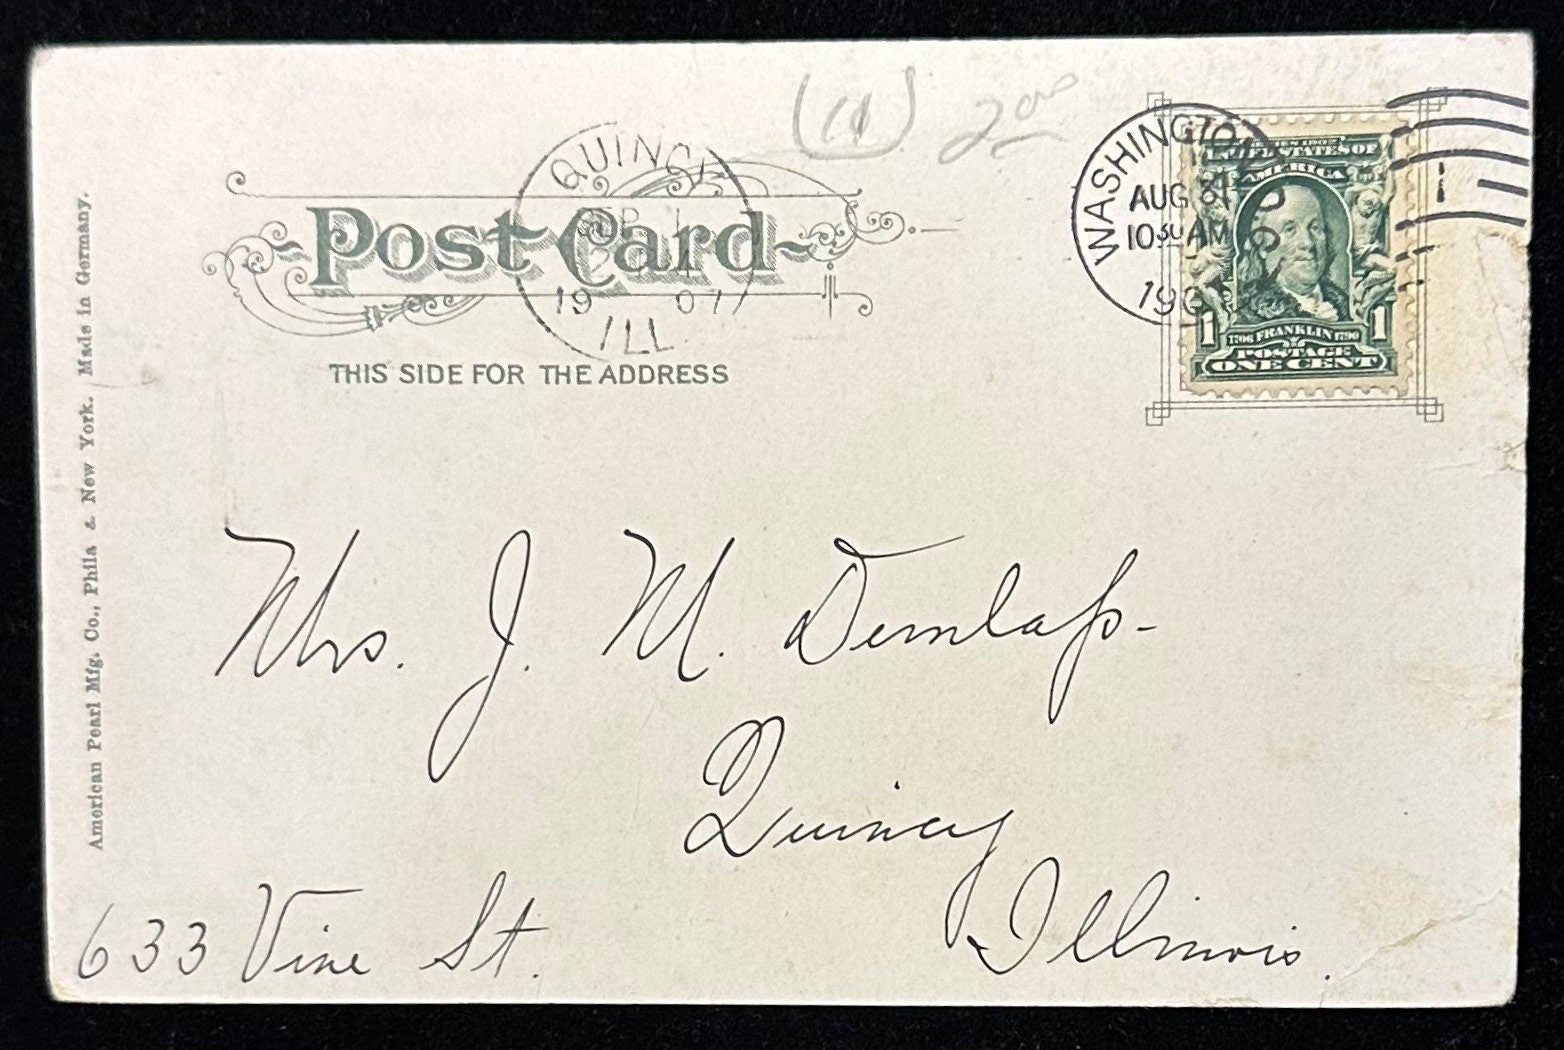 (11) 2.00
WASHINGTON, D.C.
AUG 31
10 30 AM
1907
1
UNITED STATES OF
AMERICA
1 1706 FRANKLIN 1790 1
POSTAGE
ONE CENT
QUINCY
SEP 1
1907
ILL.
Post Card
THIS SIDE FOR THE ADDRESS
American Pearl Mfg. Co., Phila & New York. Made in Germany.
Mrs. J. M. Dunlap-
Quincy
Illinois.
633 Vine St.